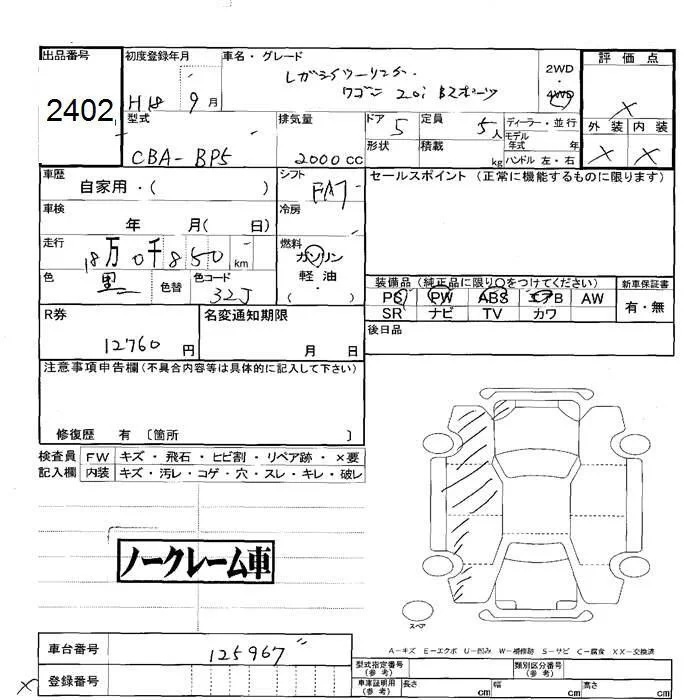 出品番号
2402
初度登録年月
H18 9月
車名・グレード
レガシィツーリング
ワゴン 20i Bスポーツ
2WD
4WD
評価点
X
外装 内装
X X
型式
CBA-BP5
排気量
2000cc
ドア 5
形状
定員 5人
積載 kg
ディーラー・並行
モデル年式 年
ハンドル 左・右
車歴
自家用・( )
シフト
FAT
車検
年 月( 日)
冷房
走行
18万0千850km
燃料
ガソリン
軽油
・
( )
色
黒
色替
色コード
32J
セールスポイント (正常に機能するものに限ります)
装備品 (純正品に限り○をつけてください)
PS PW ABS エアB AW
SR ナビ TV カワ
新車保証書
有・無
後日品
R券
12760円
名変通知期限
月 日
注意事項申告欄 (不具合内容等は具体的に記入して下さい)
修復歴 有 〔箇所 〕
検査員記入欄
FW キズ・飛石・ヒビ割・リペア跡・×要
内装 キズ・汚レ・コゲ・穴・スレ・キレ・破レ
ノークレーム車
スペア
A-キズ E-エクボ U-凹み W-補修跡 S-サビ C-腐食 XX-交換済
車台番号
125967
X 登録番号
型式指定番号(参考)
類別区分番号(参考)
車庫証明用(参考) 長さ cm 幅 cm 高さ cm